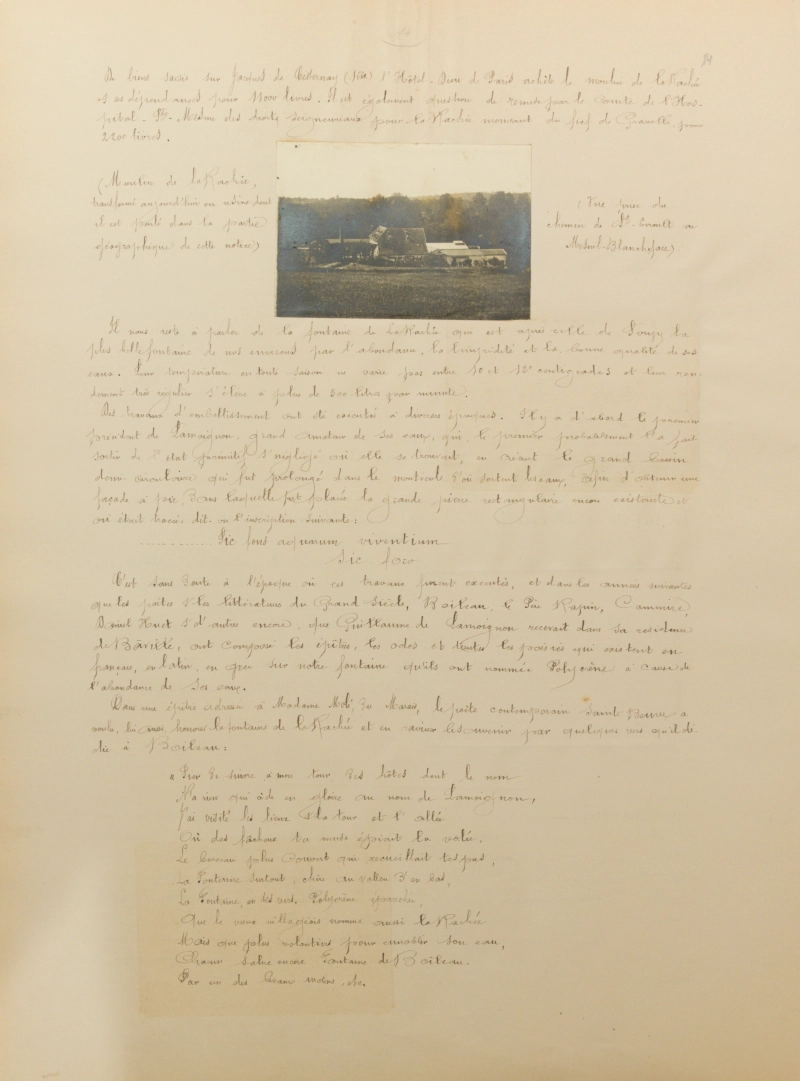 De biens saisis sur Jacques de (Sta) l'Hôtel-Dieu de Paris achète le moulin de la Rachée
et ses dépendances pour 11000 livres. Il est également question de remise par le comte de l'Hos-
pital-Ste-Mesme des droits seigneuriaux pour la Rachée mouvant du fief de Gravelle pour
2200 livres.
(Moulin de la Rachée,
transformé aujourd'hui en usine dont
il est parlé dans la partie
géographique de cette notice)
(Vue prise du
chemin de St. au
Mesnil-Blanchefare)
Il nous reste à parler de la fontaine de la Rachée qui est après celle de Souzy la
plus belle fontaine de nos environs par l'abondance, la limpidité et la bonne qualité de ses
eaux. Leur température en toute saison ne varie pas entre 10 et 12° centigrades et leur ren-
dement très régulier s'élève à plus de 500 litres par minute.
Des travaux d'embellissement ont été exécutés à diverses époques. Il y a d'abord le premier
président de Lamoignon, grand amateur de ses eaux, qui, le premier probablement l'a fait
sortir de l'état primitif & négligé où elle se trouvait, en créant le grand bassin
demi-circulaire qui fut prolongé dans le monticule d'où sortent les eaux, afin d'obtenir une
façade à pic dans laquelle fut placée la grande pierre rectangulaire encore existante et
où était tracée dit-on l'inscription suivante:
............ Sic fons aquarum viventium
Sic foro
C'est sans doute à l'époque où ces travaux furent exécutés, et dans les années suivantes
que les poètes & les littérateurs du Grand Siècle, Boileau, le Père Rapin, Commire,
Daniel Huet & d'autres encore, que Guillaume de Lamoignon recevait dans sa résidence
de Bâville, ont composé les épîtres, les odes et toutes les poésies qui existent en
français, en latin, en grec sur notre fontaine qu'ils ont nommée Polycrène à cause de
l'abondance de ses eaux.
Dans une épître adressée à Madame Molé, du Marais, le poète contemporain Sainte-Beuve a
voulu, lui aussi, honorer la fontaine de la Rachée et en raviver le souvenir par quelques vers qu'il dé-
die à Boileau:
" Fier de suivre à mon tour des hôtes dont le nom
N'a rien qui cède en gloire au nom de Lamoignon,
J'ai visité les lieux & la tour et l'allée
Où des fâcheux ta muse épiait la volée,
Le berceau plus couvert qui recueillait tes pas,
La Fontaine surtout, chère au vallon d'en bas,
La Fontaine, en tes vers, Polycrène épanchée,
Que le vieux villageois nomme aussi la Rachée
Mais que plus volontiers pour ennoblir son eau,
Chacun salue encore Fontaine de Boileau.
Par un des beaux matins, etc.